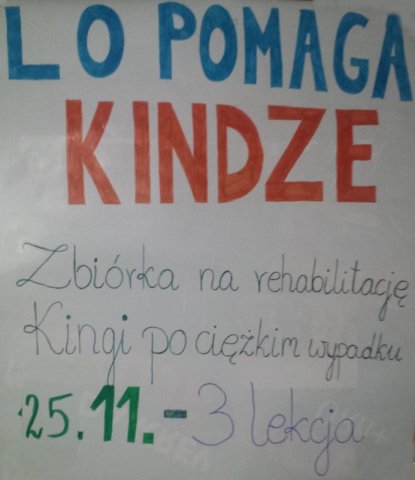 LO POMAGA
KINDZE
Zbiórka na rehabilitację
Kingi po ciężkim wypadku
25.11.-3 lekcja